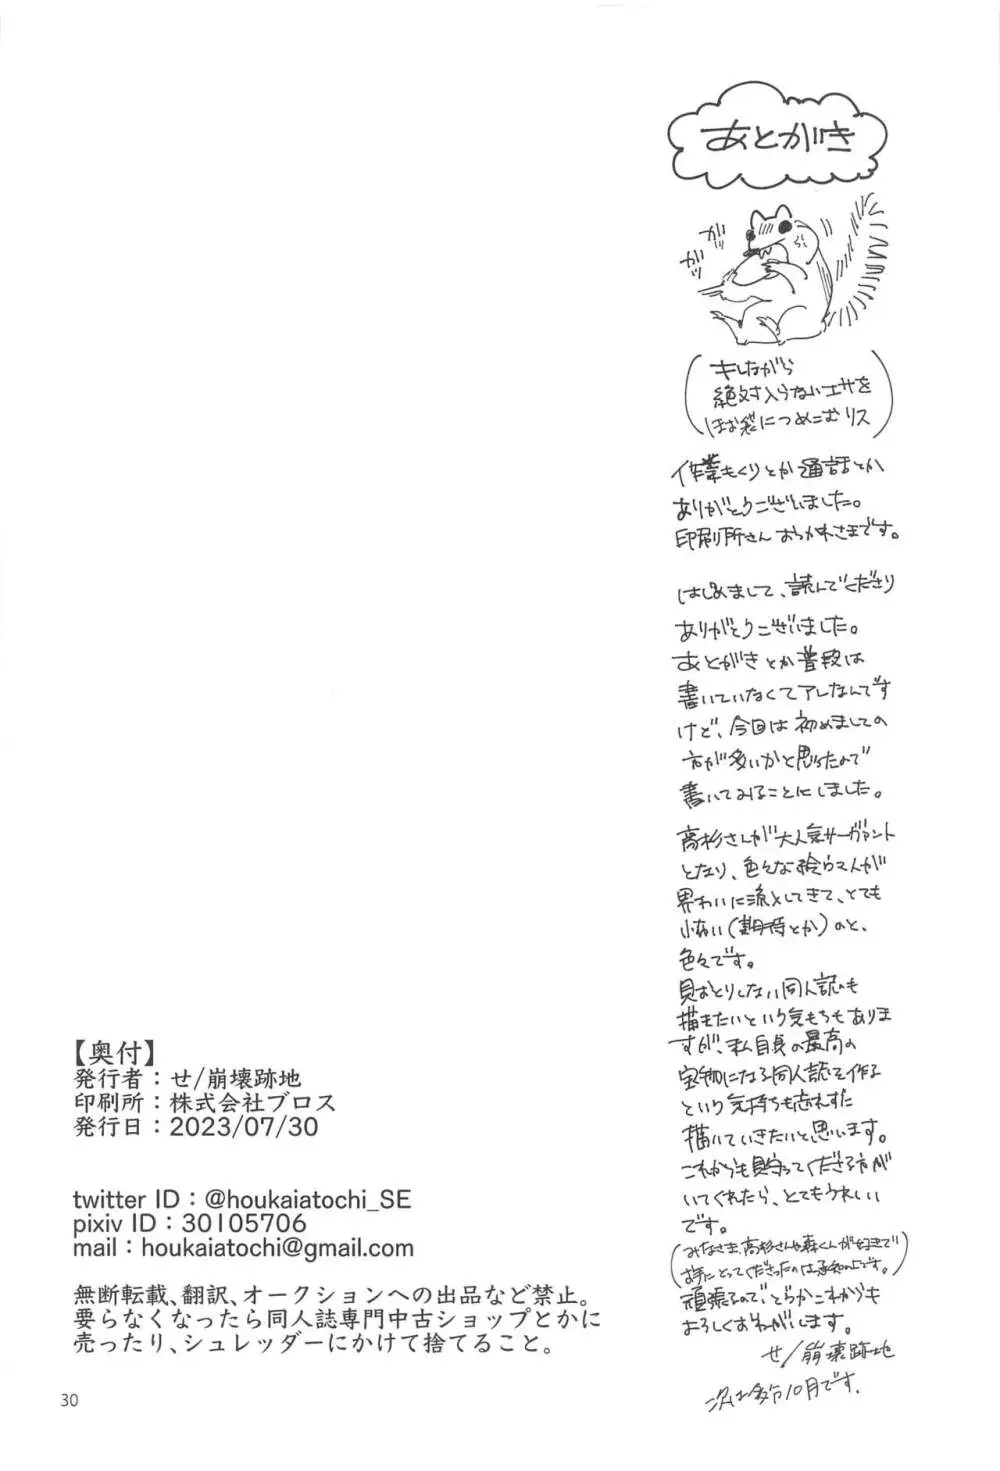 あとがき
ガッ
ガッ
(キレながら
絶対入らないエサを
ほお袋につめこむリス)
作業もくりとか通話とか
ありがとうございました。
印刷所さん おらがれさまです。
はじめまして、読んでくださり
ありがとうございました。
あとがきとか普段は
書いていなくてアレなんです
けど、今回は初めましての
方が多いかと思ったので
書いてみることにしました。
高杉さんが大人気サーヴァント
となり、色々な絵うマ人が
界わいに流入してきて、とても
小布い(期待とか)のと、
色々です。
見おとりしない同人誌も
描きたいという気もちもありま
すが、私自身の最高の
宝物になる同人誌を作る
という気持ちも忘れずに
描いていきたいと思います。
これからも見守ってくださる方が
いてくれたら、とてもうれしい
です。
(みなさま、高杉さんや森くんが好きで
お手にとってくださったのは承知の上です。)
頑張るので、どうかこれからも
よろしくおねがいします。
せ/崩壊跡地
次は多分10月です。
【奥付】
発行者：せ/崩壊跡地
印刷所：株式会社ブロス
発行日：2023/07/30
twitter ID：@houkaiatochi_SE
pixiv ID：30105706
mail：houkaiatochi@gmail.com
無断転載、翻訳、オークションへの出品など禁止。
要らなくなったら同人誌専門中古ショップとかに
売ったり、シュレッダーにかけて捨てること。
30